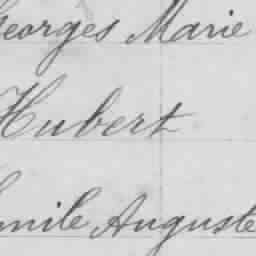 Georges Marie
Hubert
Emile Auguste